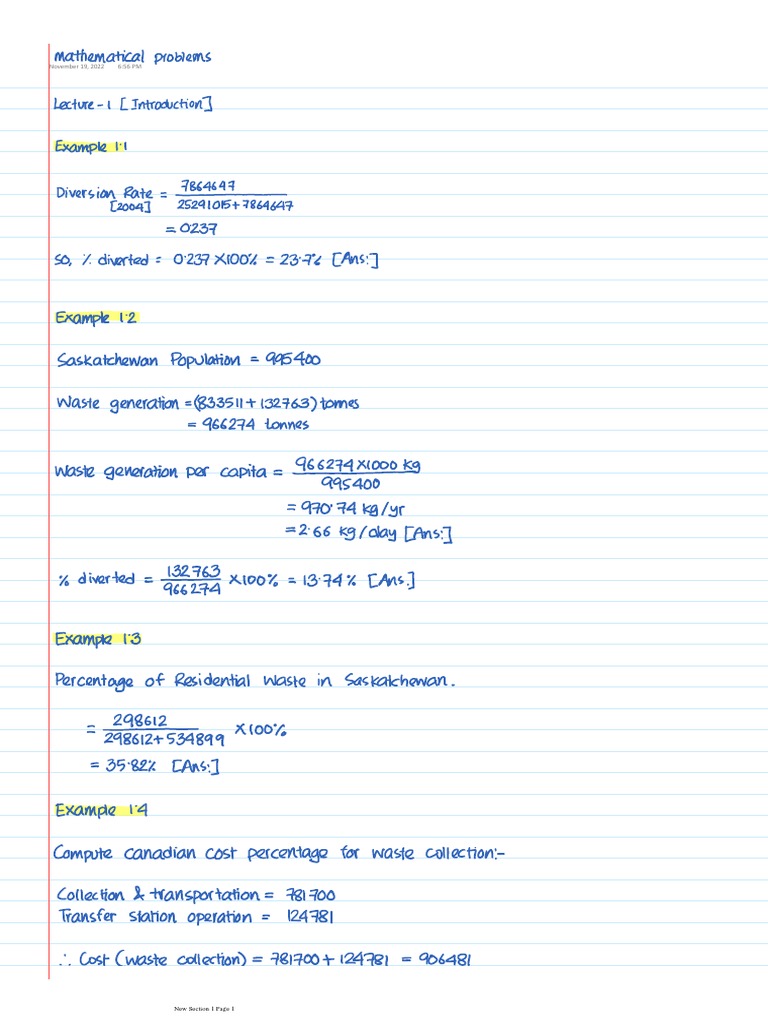 mathematical problems
November 19, 2022 6:56 PM
Lecture-1 [Introduction]
Example 1.1
Diversion Rate [2004] = 7864647 / 25291015+7864647
= 0237
So, % diverted = 0.237 X100% = 23.7% [Ans:]
Example 1.2
Saskatchewan Population = 995400
Waste generation = (833511+132763) tonnes
= 966274 tonnes
Waste generation per capita = 966274 X1000 kg / 995400
= 970.74 kg/yr
= 2.66 kg/day [Ans:]
% diverted = 132763 / 966274 X100% = 13.74% [Ans.]
Example 1.3
Percentage of Residential Waste in Saskatchewan.
= 298612 / 298612+534899 X100%
= 35.82% [Ans:]
Example 1.4
Compute canadian cost percentage for waste collection:-
Collection & transportation = 781700
Transfer station operation = 124781
∴ Cost (waste collection) = 781700+124781 = 906481
New Section 1 Page 1